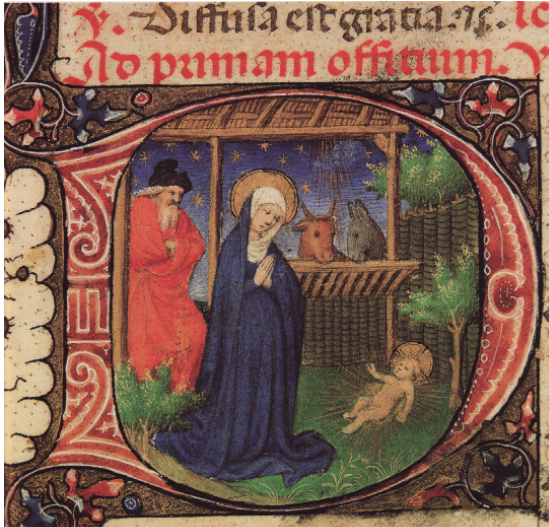 ℣. Diffusa est gratia.
Ad primam offitium. V
D